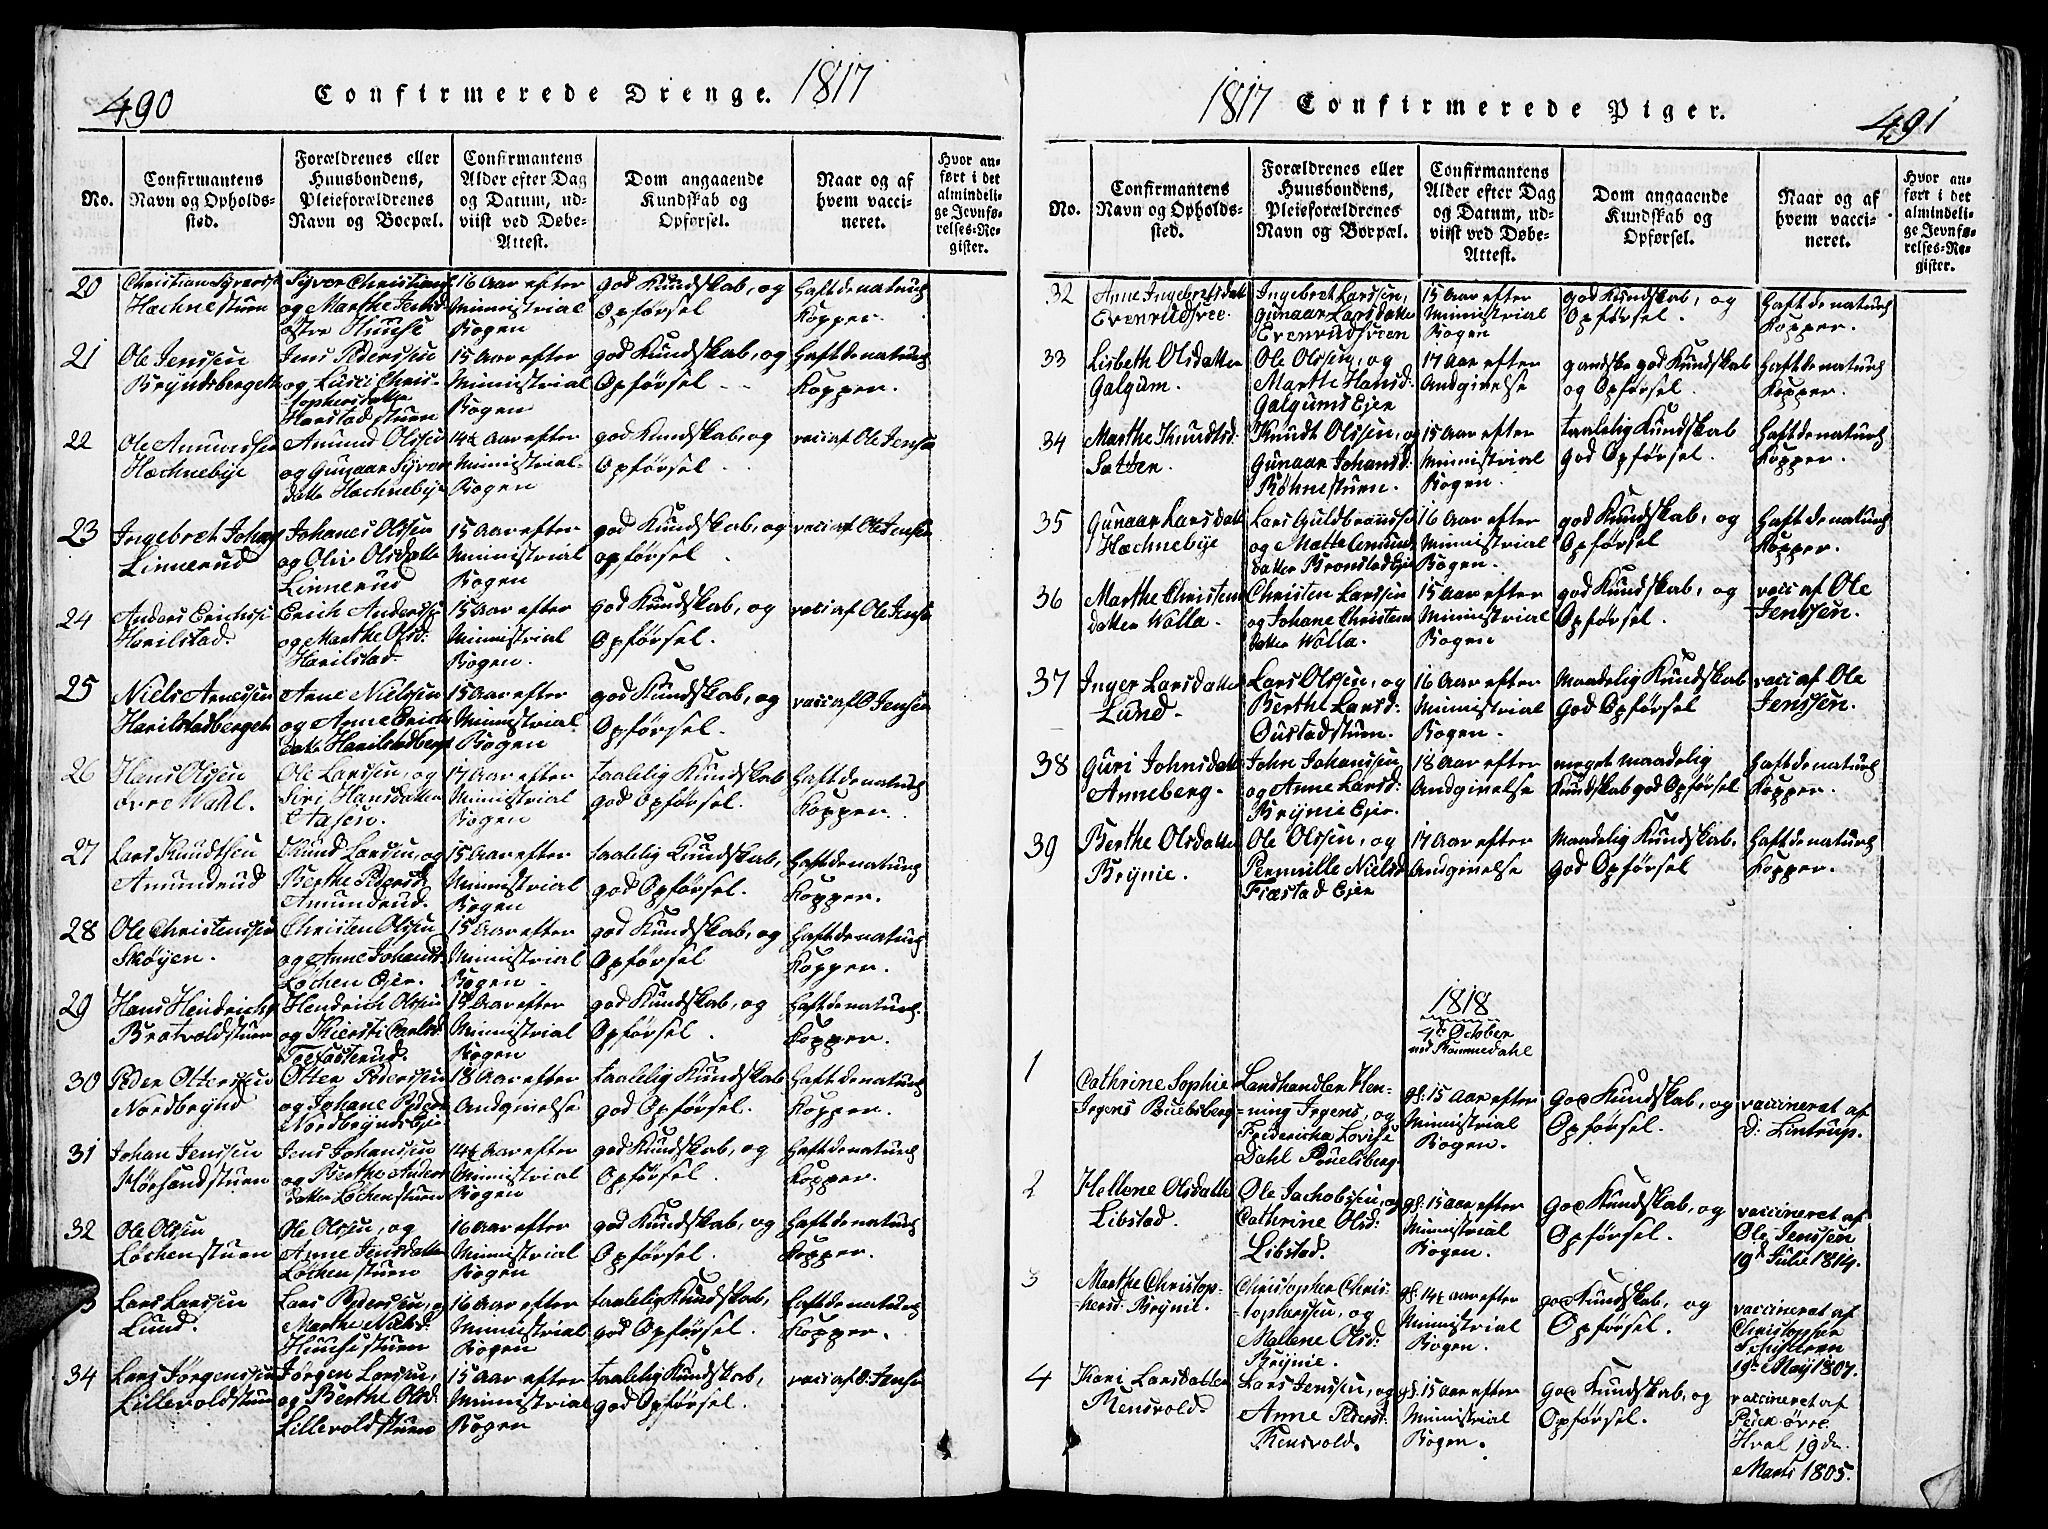 490
Confirmerede Drenge. 1817
No.
Confirmantens
Navn og Opholds-
sted.
Forældrenes eller
Huusbondens,
Pleieforældrenes
Navn og Boepæl.
Confirmantens
Alder efter Dag
og Datum, ud-
viist ved Døbe-
Attest.
Dom angaaende
Kundskab og
Opførsel.
Naar og af
hvem vacci-
neret.
Hvor an-
ført i det
almindeli-
ge Jevnfø-
relses-Re-
gister.
20
Hæchnestuen
Syver Christians
og Marthe
østre Huuse
16 Aar efter
Ministrial
Bogen
god Kundskab, og
Opførsel
haft de naturl
Kopper.
21
Ole Jenssen
Bryndsbergeth
Jens Pederssen
og Lucci Chris-
-tophersdatte
Harstadstuen
15 Aar efter
Ministrial
Bogen
god Kundskab, og
Opførsel
haft de naturl
Kopper.
22
Ole Amundsen
Hæchnebye
Amund Olssen
og Gunaar Syver
datte Hæchnebye
14½ Aar efter
Ministrial-
Bogen
god Kundskab, og
Opførsel
vacci af Ole Jense
23
Ingebret Johan
Linnerud
Johanes Olssen
og Oliv Olsdatte
Linnerud
15 Aar efter
Ministrial
Bogen
god Kundskab, og
opførsel
vacci af Ole Jensen
24
Anders Erichsse
Harilstad.
Erich Anderss
og Marthe Olsd:
Harilstad.
15 Aar efter
Ministrial
Bogen.
god Kundskab, og
Opførsel.
vacci af Ole Jense
25
Niels Arnessen
Harilstadbergeth
Arne Nielssen
og Anne Erich
datte Harilstadberg
15 Aar efter
Ministrial
Bogen
god Kundskab, og
Opførsel.
vacci af O Jensen
26
Hans Olssen
øvre Wahl.
Ole Larssen, og
Siri Hansdatter
Aasen.
17 Aar efter
Ministrial
Bogen
taalelig Kundskab
god Opførsel.
haft de naturl
Kopper.
27
Lars Knudtsen
Amundrud
Knud Larssen, og
Berthe Pedersd
Amundrud.
15 Aar efter
Ministrial
Bogen
taalelig Kundskab,
god Opførsel.
haft de naturl
Kopper.
28
Ole Christenssen
Skøyen.
Christen Olssen
og Anne Johansd
Løchen Ejer.
15 Aar efter
Ministrial
Bogen
god Kundskab, og
Opførsel
haft de naturl
Kopper.
29
Hans Hendrichs
Bratvoldstuen
Hendrich Olssen
og Kiersti Carlsd:
15 Aar efter
Ministrial
Bogen
god Kundskab, og
Opførsel
haft de naturl.
Kopper.
30
Peder Otterssen
Nordbrynd
Otter Pederssen
og Johane Peders
Nordbrynds Eje
18 Aar efter
Andgivelse
taalelig Kundskab
god Opførsel.
haft de naturl
Kopper.
31
Johan Jenssen
Mørsandstuen
Jens Johanssen
og Berthe Anders
datter Løchenstuen
14½ Aar efter
Ministrial
Bogen
god Kundskab, og
Opførsel.
haft de naturl
Kopper.
32
Ole Olssen
Løchenstuen
Ole Olssen, og
Anne Jensdatter
Løchenstuen
16 Aar efter
Ministrial
Bogen
god Kundskab, og
Opførsel.
haft de naturl
Kopper.
3
Lars Larssen
Lund.
Lars Pederssen, og
Marthe Nielsd:
Huusestuen
16 Aar efter
Ministrial
Bogen
taalelig Kundskab,
god Opførsel.
haft de naturl
Kopper.
34
Lars Jørgenssen
Lillevoldstuen
Jørgen Larssen,
og Berthe Olsd:
Lillevoldstuen
15 Aar efter
Ministrial
Bogen
taalelig Kundskab,
god Opførsel.
vacci af O. Jense
1817 Confirmerede Piger.
491
No.
Confirmantens
Navn og Opholds-
sted.
Forældrenes eller
Huusbondens,
Pleieforældrenes
Navn og Boepæl.
Confirmantens
Alder efter Dag
og Datum, ud-
viist ved Døbe-
Attest.
Dom angaaende
Kundskab og
Opførsel.
Naar og af
hvem vacci-
neret.
Hvor an-
ført i det
almindeli-
ge Jevnfø-
relses-Re-
gister.
32
Anne Ingebretsdatt
Evenrudsvee.
Ingebret Larssen,
Gunaar Larsdatte
Evenrudsveen
15 Aar efter
Ministrial
Bogen
god Kundskab, og
Opførsel.
haft de naturl
Kopper.
33
Lisbeth Olsdatter
Galgum.
Ole Olssen, og
Marthe Hansd:
Galgums Ejer
17 Aar efter
Andgivelse
gandske god Kundskab
og Opførsel.
haft de naturl
Kopper.
34
Marthe Knudtsd:
Sætter.
Knudt Olssen, og
Gunaar Johansd:
Bøhnestuen.
15 Aar efter
Ministrial
Bogen.
taalelig Kundskab
god Opførsel.
haft de naturl
Kopper.
35
Gunaar Larsdatte
Hæchnebye
Lars Guldbrandss
og Mætte Amund
datter Bronstad Eje
16 Aar efter
Ministrial
Bogen.
god Kundskab, og
Opførsel
haft de naturl
Kopper.
36
Marthe Christens
datter Wålla.
Christen Larssen
og Johane Christens
datter Wålla.
15 Aar efter
Ministrial
Bogen
god Kundskab, og
Opførsel.
vacci af Ole
Jenssen.
37
Inger Larsdatter
Lund.
Lars Olssen, og
Berthe Larsd:
Oustadstuen.
16 Aar efter
Ministrial
Bogen.
Maadelig Kundskab
god Opførsel
vacci af Ole
Jenssen.
38
Guri Johnsdatte
Anneberg.
John Johanssen
og Anne Larsd:
Brynie Ejer.
18 Aar efter
Andgivelse
meget maadelig
Kundskab god Opførsel
haft de naturl
Kopper.
39
Berthe Olsdatter
Brynie.
Ole Olssen, og
Pernnille Nielsd
Fiæstad Ejer
17 Aar efter
Andgivelse
Maadelig Kundskab.
god Opførsel
haft de naturl
Kopper.
1818
4de October
ved Rommedahl
1
Cathrine Sophie
Irgens Pouelsberg
Landhandler Hen-
-ning Irgens, og
Friedericha Lovise
Dahl Pouelsberg.
gl: 15 Aar efter
Ministrial
Bogen.
God Kundskab, og
Opførsel.
vaccineret af
D: Lintrup.
2
Hellene Olsdatte
Libstad.
Ole Jachobssen, og
Cathrine Olsd:
Libstad.
gl: 15 Aar efter
Ministrial
Bogen.
God Kundskab, og
Opførsel.
vaccineret af
Ole Jenssen
19de Julie 1814.
3
Marthe Christop-
-hersd: Brynie.
Christopher Chris-
-tophersen, og
Mallene Olsd:
Brynie.
gl: 14½ Aar efter
Ministrial
Bogen.
god Kundskab, og
Opførsel.
vaccineret af
Christopher
19de May 1807.
4
Kari Larsdatter
Rensvold.
Lars Jenssen, og
Anne Pedersd:
Rensvold.
gl: 15 Aar efter
Ministrial
Bogen.
God Kundskab, og
Opførsel.
vaccineret af
Peder øvre
Hval 19de
Marti 1805.